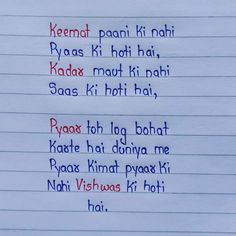 Keemat paani ki nahi
Pyaas ki hoti hai,
Kadar maut ki nahi
Saas ki hoti hai,
Pyaar toh log bohat
Karte hai duniya me
Pyaar Kimat pyaar ki
Nahi Vishwas ki hoti
hai.